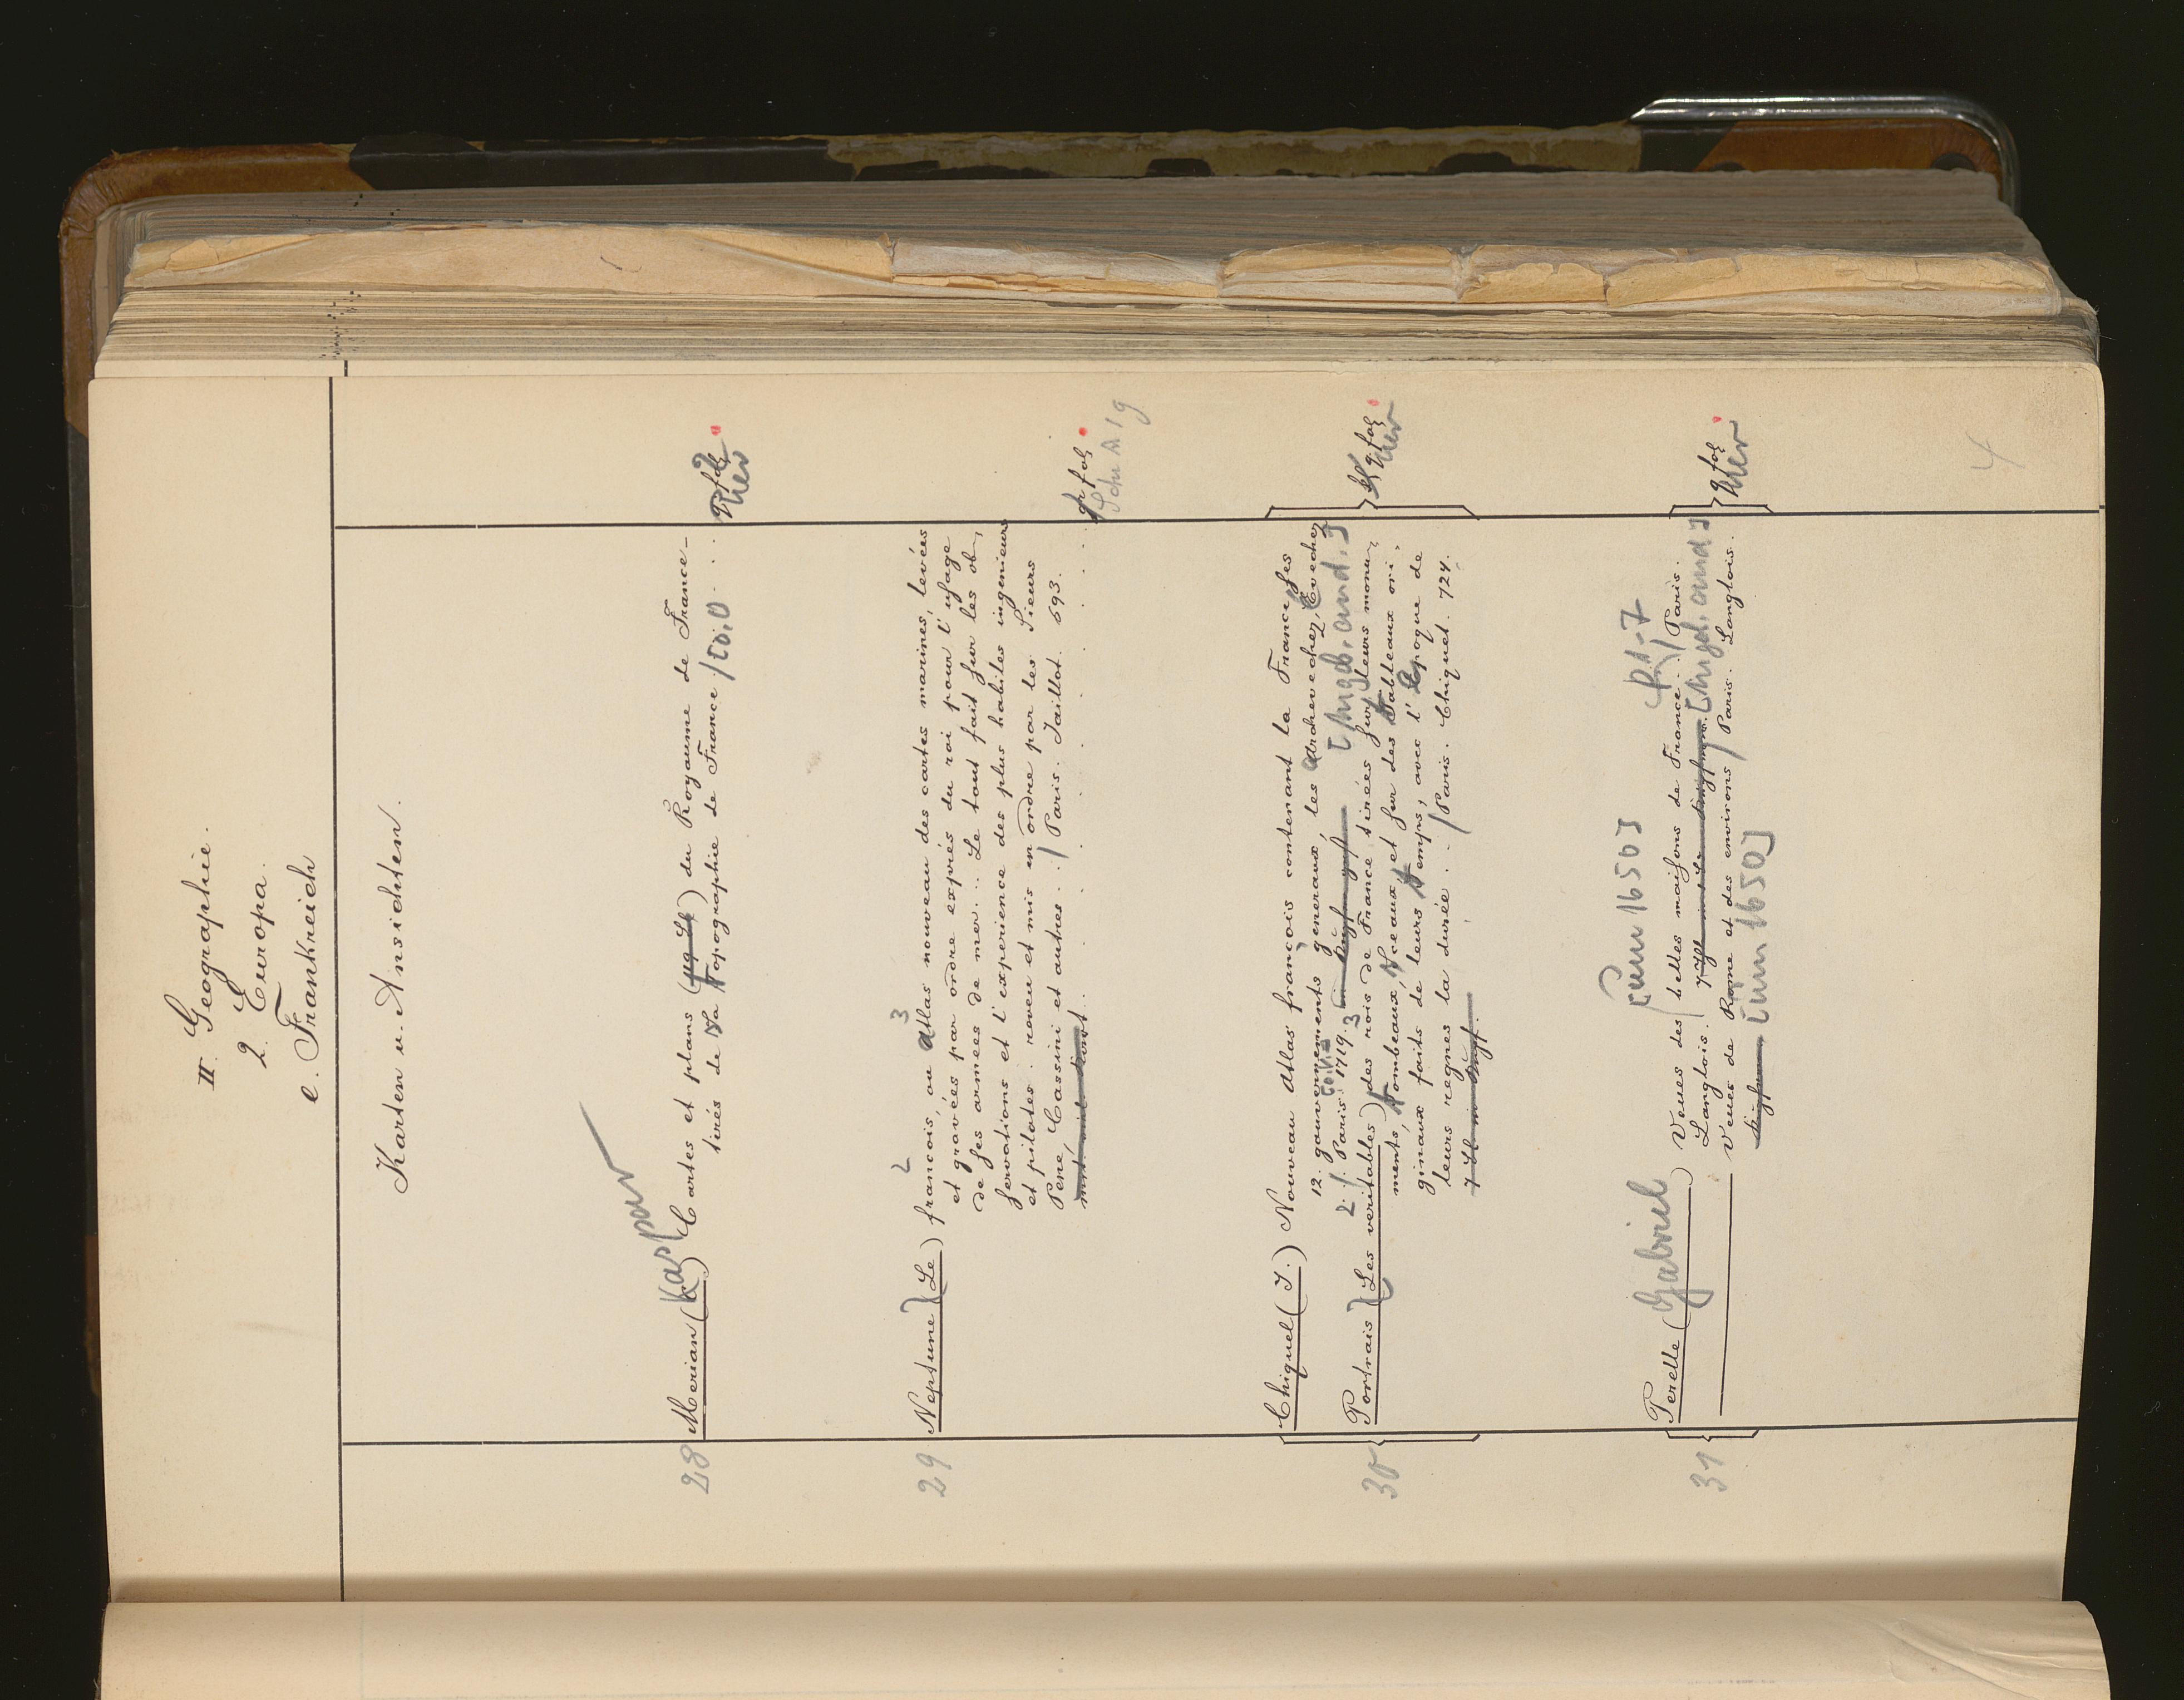 II. Geographie.
2. Europa.
e. Frankreich
Karten u. Ansichten.
28 Merian (Kaspar) Cartes et plans du Royaume de France -
tirés de la Topographie de France. / [o.O.
fol
29 Neptune) (Le) françois, ou atlas nouveau des cartes marines, levées
2 3
et gravées par ordre exprés du roi pour l'usage
de ses armees de mer... Le tout fait sur les ob,
servations et l'experience des plus habiles ingenieurs
et pilotes. reveu et mis en ordre par les Sieurs
Pene, Cassini et autres. / Paris. Jaillot. 693.
fol
Chiquet (J.) Nouveau Atlas françois contenant la France, ses
12 gouvernements generaux, les archevechez, Evechez
/ Paris 1719. [Angeb. and.]
30 Portrais) (Les veritables) des rois de France tirées sur leurs monu,
2 3
ments, tombeaux, sceaux, et sur des tableaux ori,
ginaux faits de leurs temps, avec l'epoque de
leurs regnes la durée.. / Paris. Chiquet. 724.
fol
[um 1650] P. 1-7
31 Perelle (Gabriel) Veues des belles maisons de France. / Paris.
Langlois. [Angeb. and.]
Veues de Rome et des environs / Paris. Langlois.
[um 1650]
fol
4